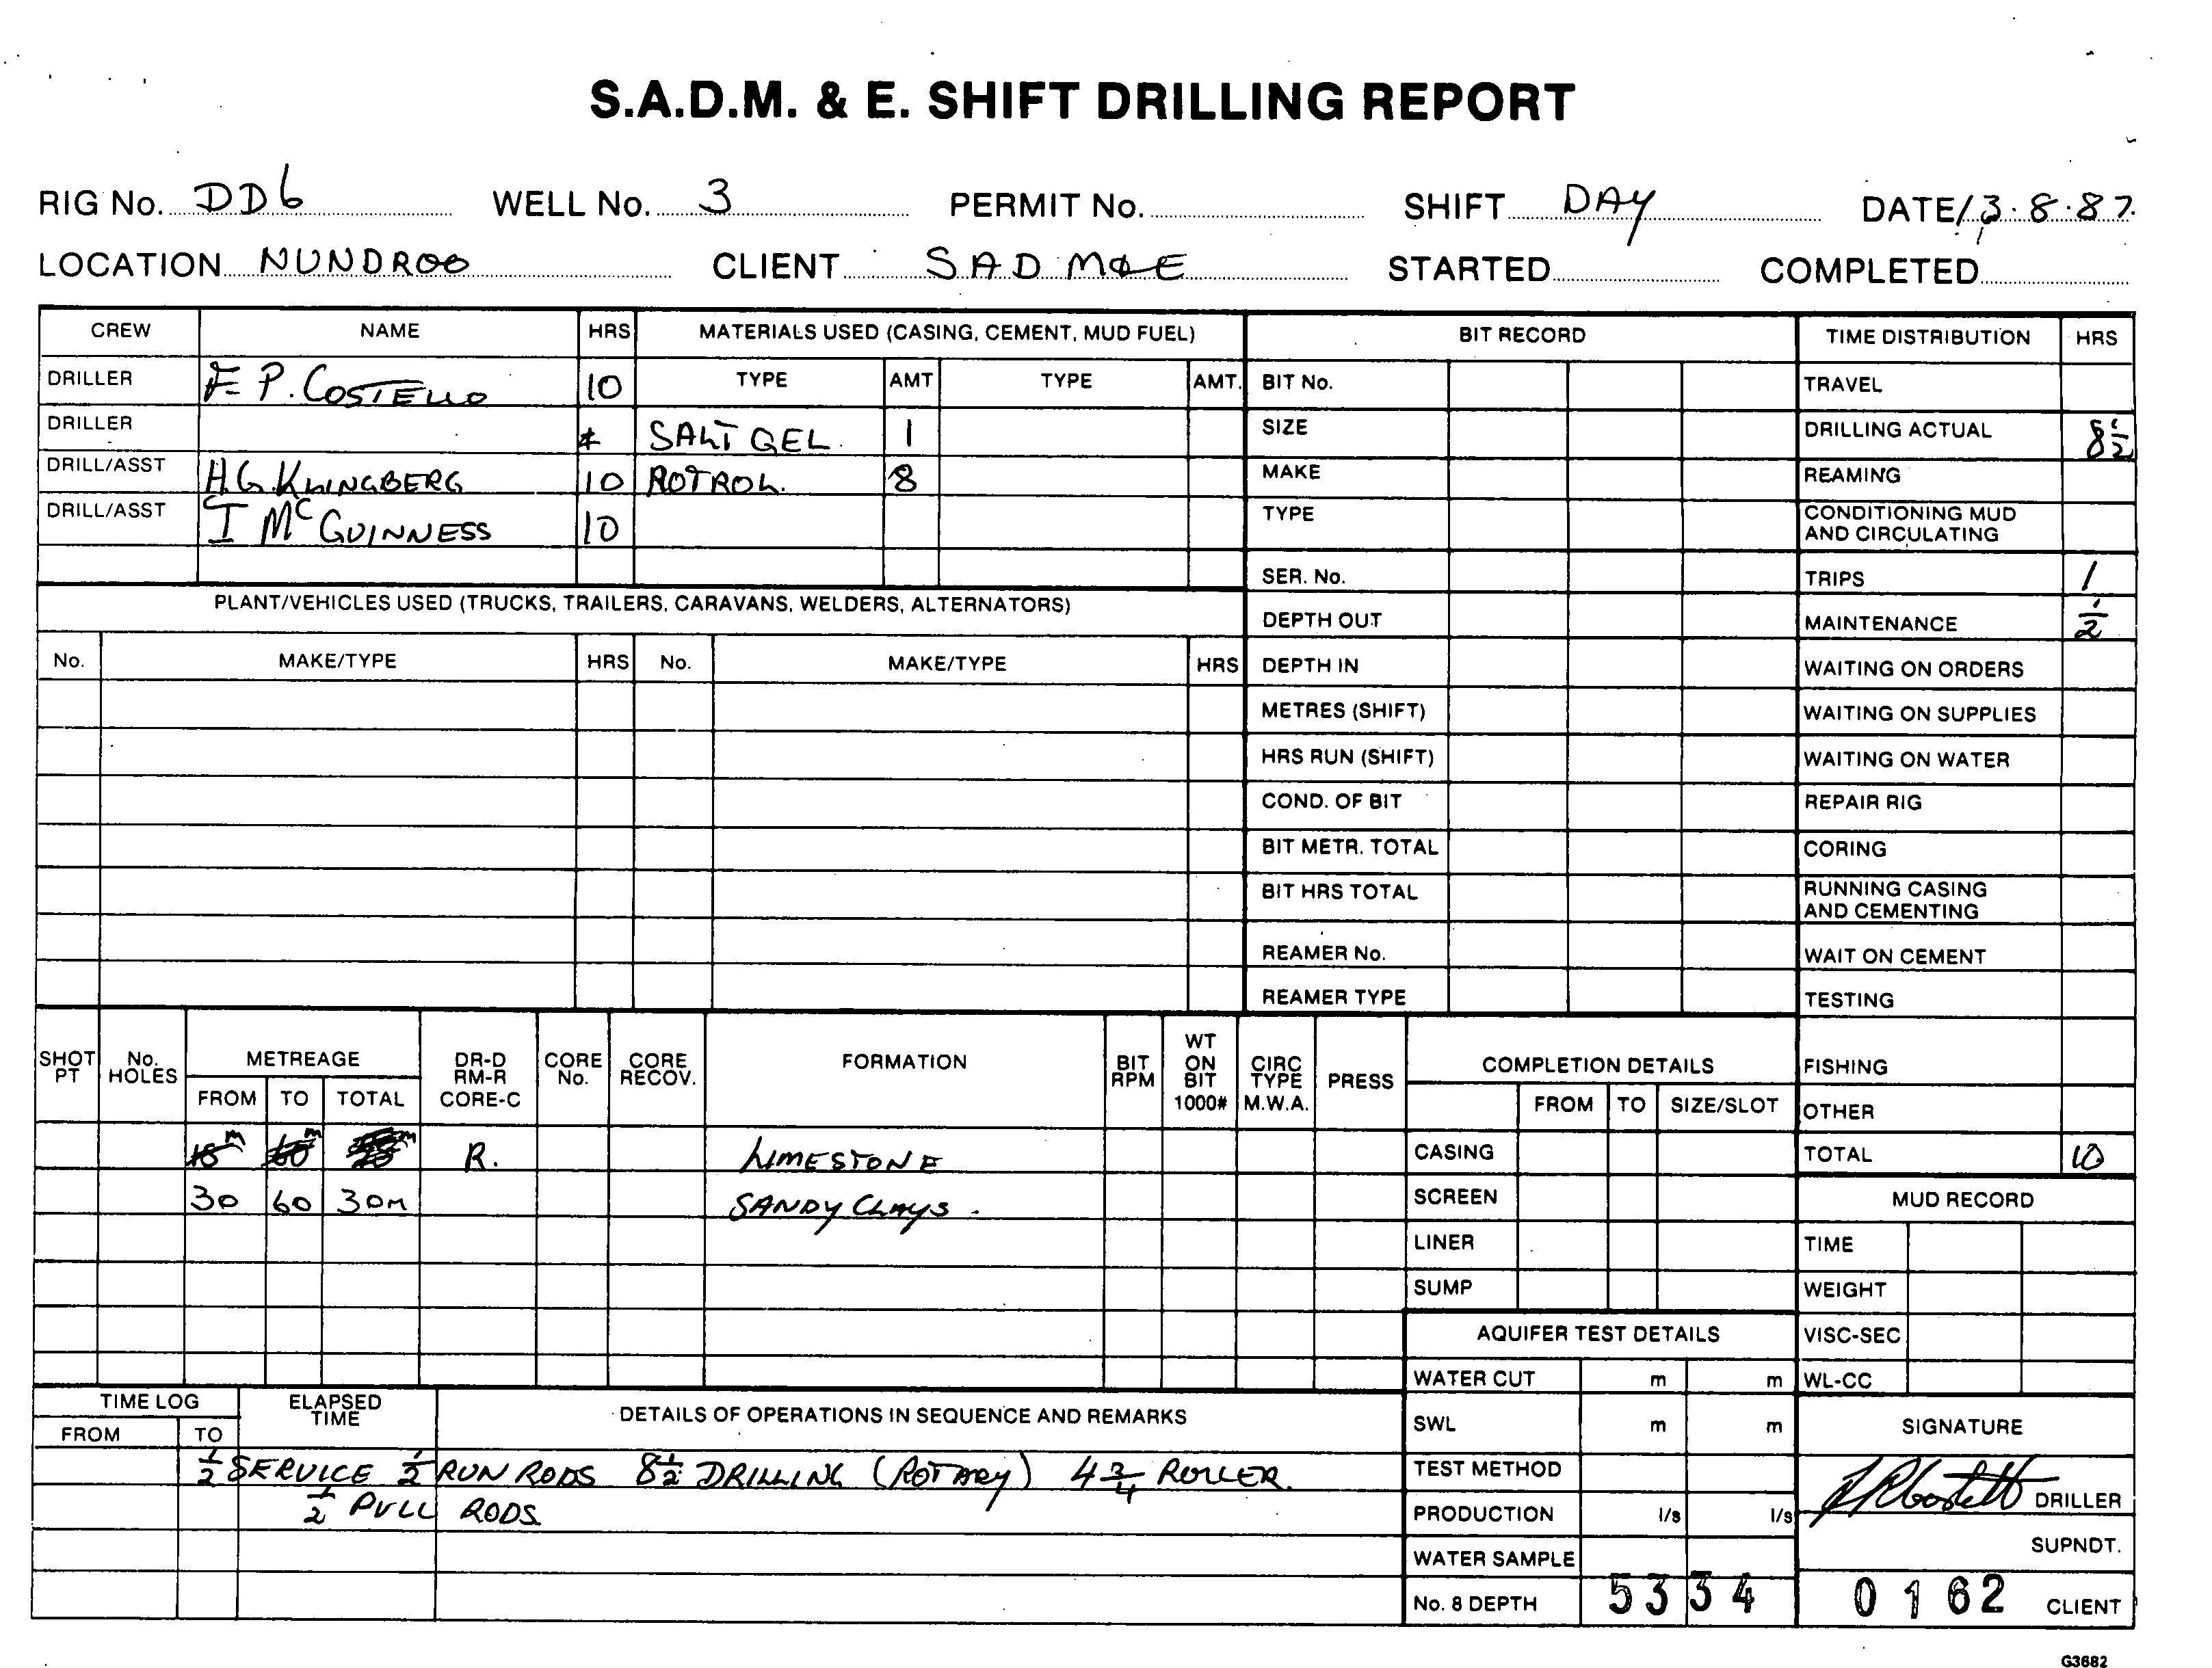 S.A.D.M. & E. SHIFT DRILLING REPORT
RIG No. DD6 WELL No. 3 PERMIT No. SHIFT DAY DATE 13.8.87.
LOCATION NUNDROO CLIENT S.A.D M&E STARTED COMPLETED
CREW NAME HRS MATERIALS USED (CASING, CEMENT, MUD FUEL) BIT RECORD TIME DISTRIBUTION HRS
DRILLER F P. COSTELLO 10 TYPE AMT TYPE AMT. BIT No. TRAVEL
DRILLER SALT GEL. 1 SIZE DRILLING ACTUAL 8½
DRILL/ASST H.G. KLINGBERG 10 ROTROL. 8 MAKE REAMING
DRILL/ASST I McGUINNESS 10 TYPE CONDITIONING MUD
AND CIRCULATING
SER. No. TRIPS 1
PLANT/VEHICLES USED (TRUCKS, TRAILERS, CARAVANS, WELDERS, ALTERNATORS) DEPTH OUT MAINTENANCE ½
No. MAKE/TYPE HRS No. MAKE/TYPE HRS DEPTH IN WAITING ON ORDERS
METRES (SHIFT) WAITING ON SUPPLIES
HRS RUN (SHIFT) WAITING ON WATER
COND. OF BIT REPAIR RIG
BIT METR. TOTAL CORING
BIT HRS TOTAL RUNNING CASING
AND CEMENTING
REAMER No. WAIT ON CEMENT
REAMER TYPE TESTING
SHOT PT No. HOLES METREAGE DR-D RM-R CORE-C CORE No. CORE RECOV. FORMATION BIT RPM WT ON BIT 1000# CIRC TYPE M.W.A. PRESS COMPLETION DETAILS FISHING
FROM TO TOTAL FROM TO SIZE/SLOT OTHER
R. LIMESTONE CASING TOTAL 10
30 60 30m SANDY CLAYS. SCREEN MUD RECORD
LINER TIME
SUMP WEIGHT
AQUIFER TEST DETAILS VISC-SEC
WATER CUT m m WL-CC
TIME LOG ELAPSED TIME DETAILS OF OPERATIONS IN SEQUENCE AND REMARKS SWL m m SIGNATURE
FROM TO
½ SERVICE ½ RUN RODS 8½ DRILLING (ROTARY) 4¾ ROLLER. TEST METHOD
½ PULL RODS PRODUCTION l/s l/s DRILLER
WATER SAMPLE SUPNDT.
No. 8 DEPTH 5334 0162 CLIENT
G3682